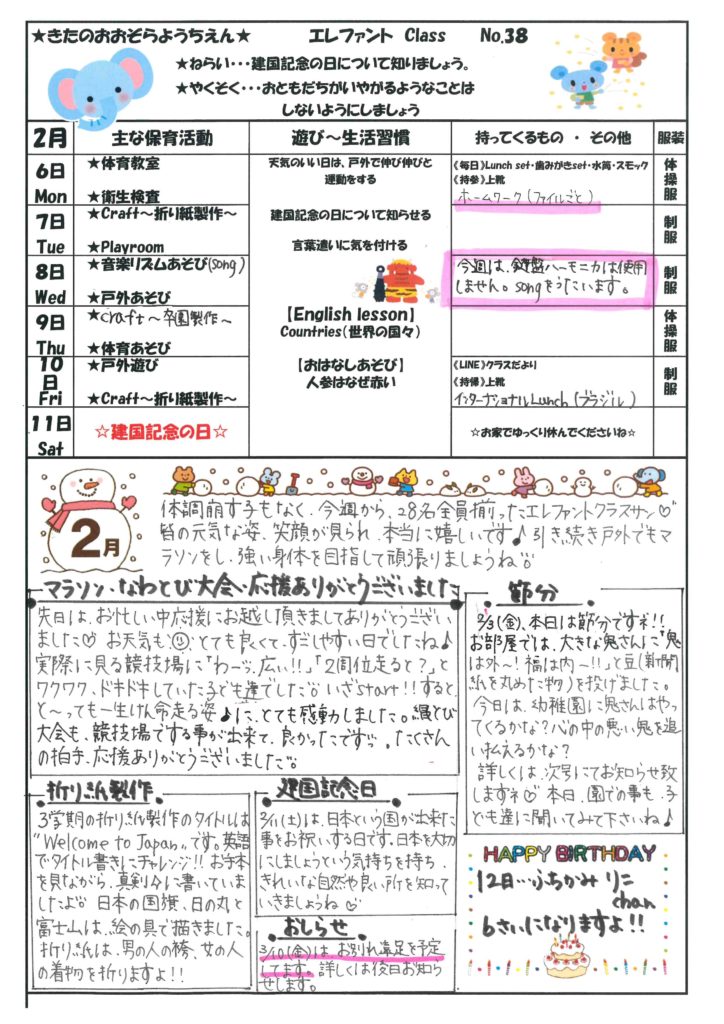 ★きたのおおぞらようちえん★ エレファント Class No.38
★ねらい・・・建国記念の日について知りましょう。
★やくそく・・・おともだちがいやがるようなことは
しないようにしましょう
2月 主な保育活動 遊び～生活習慣 持ってくるもの ・ その他 服装
6日 Mon
★体育教室
★衛生検査
天気のいい日は、戸外で伸び伸びと
運動をする
《毎日》Lunch set・歯みがきset・水筒・スモック
《持参》上靴
ホームワーク(ファイルごと)
体操服
7日 Tue
★Craft～折り紙製作～
★Playroom
建国記念の日について知らせる
言葉遣いに気を付ける
制服
8日 Wed
★音楽リズムあそび(song)
★戸外あそび
今週は、鍵盤ハーモニカは使用
しません。songをうたいます。
制服
9日 Thu
★craft～卒園製作～
★体育あそび
【English lesson】
Countries(世界の国々)
体操服
10日 Fri
★戸外遊び
★Craft～折り紙製作～
【おはなしあそび】
人参はなぜ赤い
《LINE》クラスだより
《持帰》上靴
インターナショナルLunch(ブラジル)
制服
11日 Sat
☆建国記念の日☆
☆お家でゆっくり休んでくださいね☆
2月
体調崩す子もなく、今週から、28名全員揃ったエレファントクラスサン♡
皆の元気な姿、笑顔が見られ、本当に嬉しいです♪引き続き戸外でもマ
ラソンをし、強い身体を目指して頑張りましょうね
マラソン・なわとび大会・応援ありがとうございました
先日は、お忙しい中応援にお越し頂きましてありがとうござい
ました♡ お天気も、とても良くて、すごしやすい日でしたね♪
実際に見る競技場に「わーッ、広い!!」「2周位走ると?」と
ワクワク、ドキドキしていた子ども達でした いざstart!!すると、
と～っても一生けん命走る姿♪に、とても感動しました。縄とび
大会も、競技場でする事が出来て、良かったですッ。たくさん
の拍手、応援ありがとうございました
節分
2/3(金)、本日は節分ですネ!!
お部屋では、大きな鬼さんに"鬼
は外～!福は内～!!"と豆(新聞
紙を丸めた物)を投げました。
今日は、幼稚園に鬼さんはやっ
てくるかな?心の中の悪い鬼を追
い払えるかな?
詳しくは、次号にてお知らせ致
しますネ♡ 本日、園での事も、子
ども達に聞いてみて下さいね♪
折り紙製作
3学期の折り紙製作のタイトルは
"Welcome to Japan"です。英語
でタイトル書きにチャレンジ!!お手本
を見ながら、真剣に書いていま
したよ 日本の国旗、日の丸と
富士山は、絵の具で描きました。
折り紙は、男の人の袴、女の人
の着物を折りますよ!!
建国記念日
2/11(土)は、日本という国が出来た
事をお祝いする日です。日本を大切
にしましょうという気持ちを持ち、
きれいな自然や良い所を知って
いきましょうね
おしらせ
3/10(金)は、お別れ遠足を予定
してます。詳しくは後日お知ら
せします。
HAPPY BIRTHDAY
12日…ふちがみ りこ
chan
6さいになりますよ!!